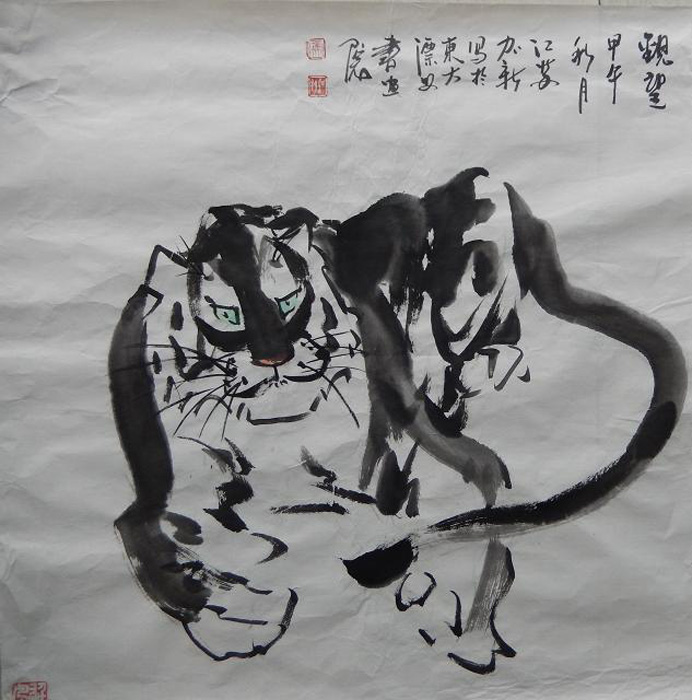 觀望
甲午
秋月
江蘇
加新
寫於
東大
漂母
書畫
院